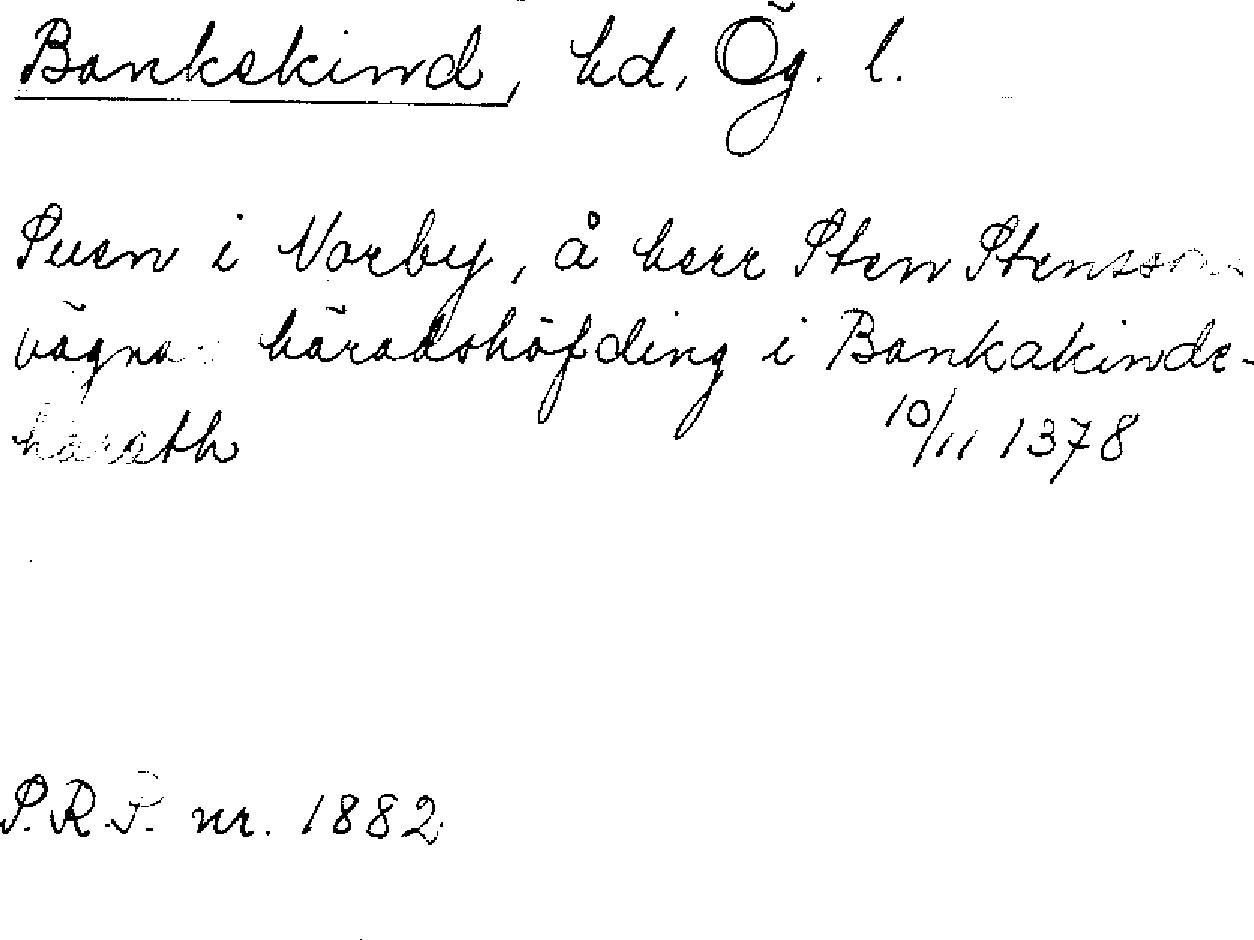 Bankekind, hd, Ög. l.
Suen i Norby, å herr Sten Stenssons
vägna häradshöfding i Bankakinde-
härath 10/11 1378
S.R.P. nr. 1882